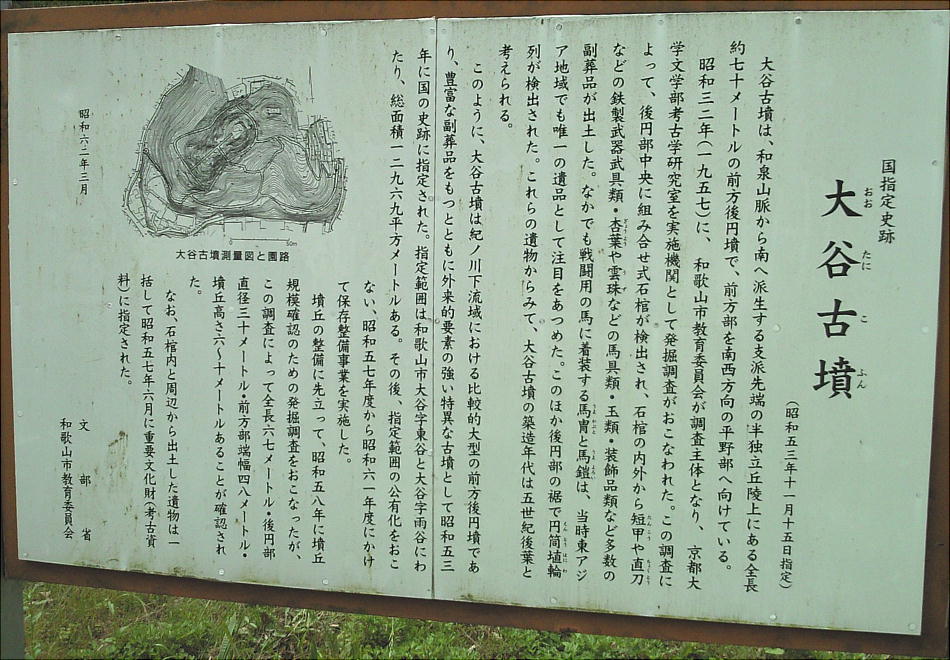 国指定史跡
大谷古墳
おおたにこふん
（昭和五三年十一月十五日指定）
大谷古墳は、和泉山脈から南へ派生する支派先端の半独立丘陵上にある全長
約七十メートルの前方後円墳で、前方部を南西方向の平野部へ向けている。
昭和三二年（一九五七）に、和歌山市教育委員会が調査主体となり、京都大
学文学部考古学研究室を実施機関として発掘調査がおこなわれた。この調査に
よって、後円部中央に組み合せ式石棺が検出され、石棺の内外から短甲や直刀
などの鉄製武器武具類・杏葉や雲珠などの馬具類・玉類・装飾品類など多数の
副葬品が出土した。なかでも戦闘用の馬に着装する馬冑と馬鎧は、当時東アジ
ア地域でも唯一の遺品として注目をあつめた。このほか後円部の裾で円筒埴輪
列が検出された。これらの遺物からみて、大谷古墳の築造年代は五世紀後葉と
考えられる。
このように、大谷古墳は紀ノ川下流域における比較的大型の前方後円墳であ
り、豊富な副葬品をもつとともに外来的要素の強い特異な古墳として昭和五三
年に国の史跡に指定された。指定範囲は和歌山市大谷字東谷と大谷字雨谷にわ
たり、総面積一二九六九平方メートルある。その後、指定範囲の公有化をおこ
ない、昭和五七年度から昭和六一年度にかけ
て保存整備事業を実施した。
墳丘の整備に先立って、昭和五八年に墳丘
規模確認のための発掘調査をおこなったが、
この調査によって全長六七メートル・後円部
直径三十メートル・前方部端幅四八メートル・
墳丘高さ六〜十メートルあることが確認され
た。
なお、石棺内と周辺から出土した遺物は一
括して昭和五七年六月に重要文化財（考古資
料）に指定された。
0 50m
大谷古墳測量図と園路
昭和六二年三月
文部省
和歌山市教育委員会